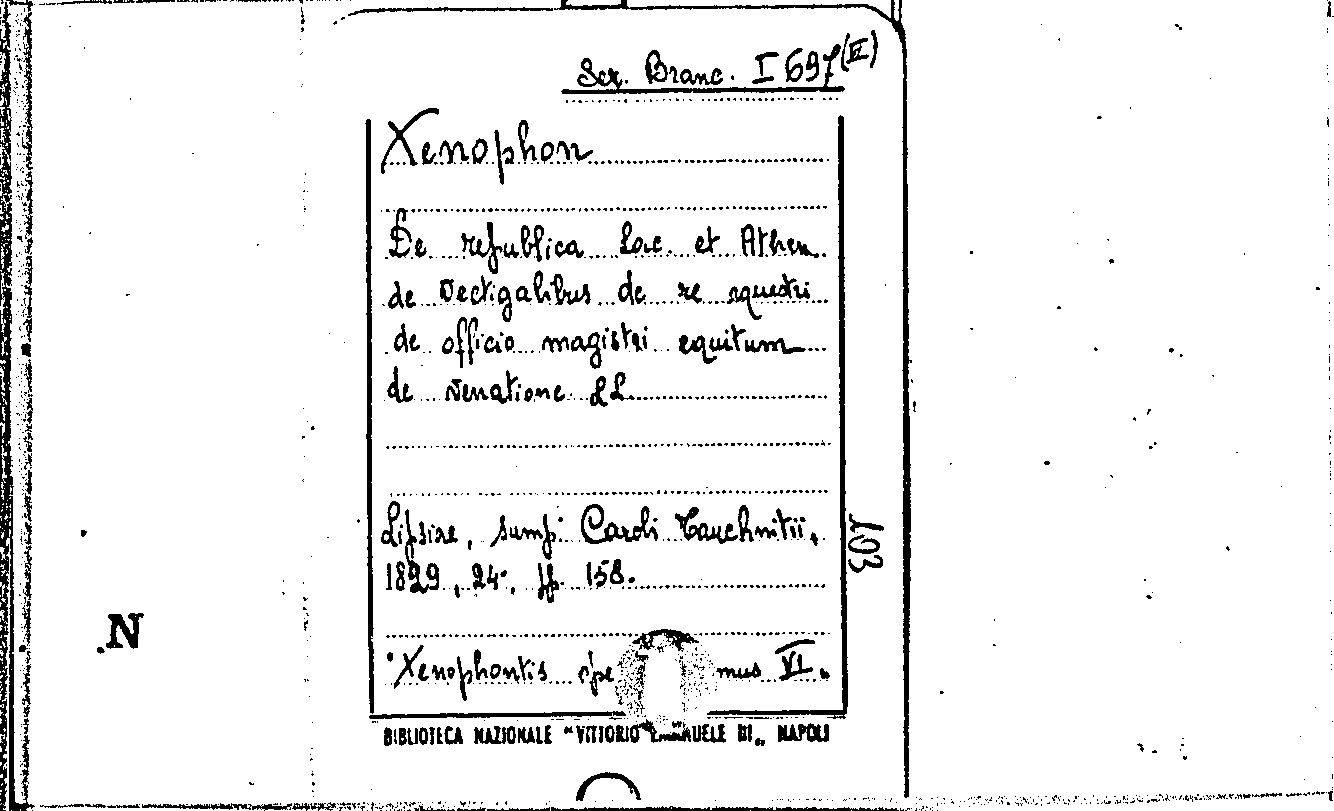 Scr. Branc. I 697 (VI)
Xenophon
De republica Lac. et Athen.
de vectigalibus de re equestri
de officio magistri equitum
de venatione LL.
Lipsiae, sump. Caroli Tauchnitii,
1829, 24°, pp. 158.
"Xenophontis ope mus VI"
BIBLIOTECA NAZIONALE "VITTORIO EMANUELE III„ NAPOLI
103
.N